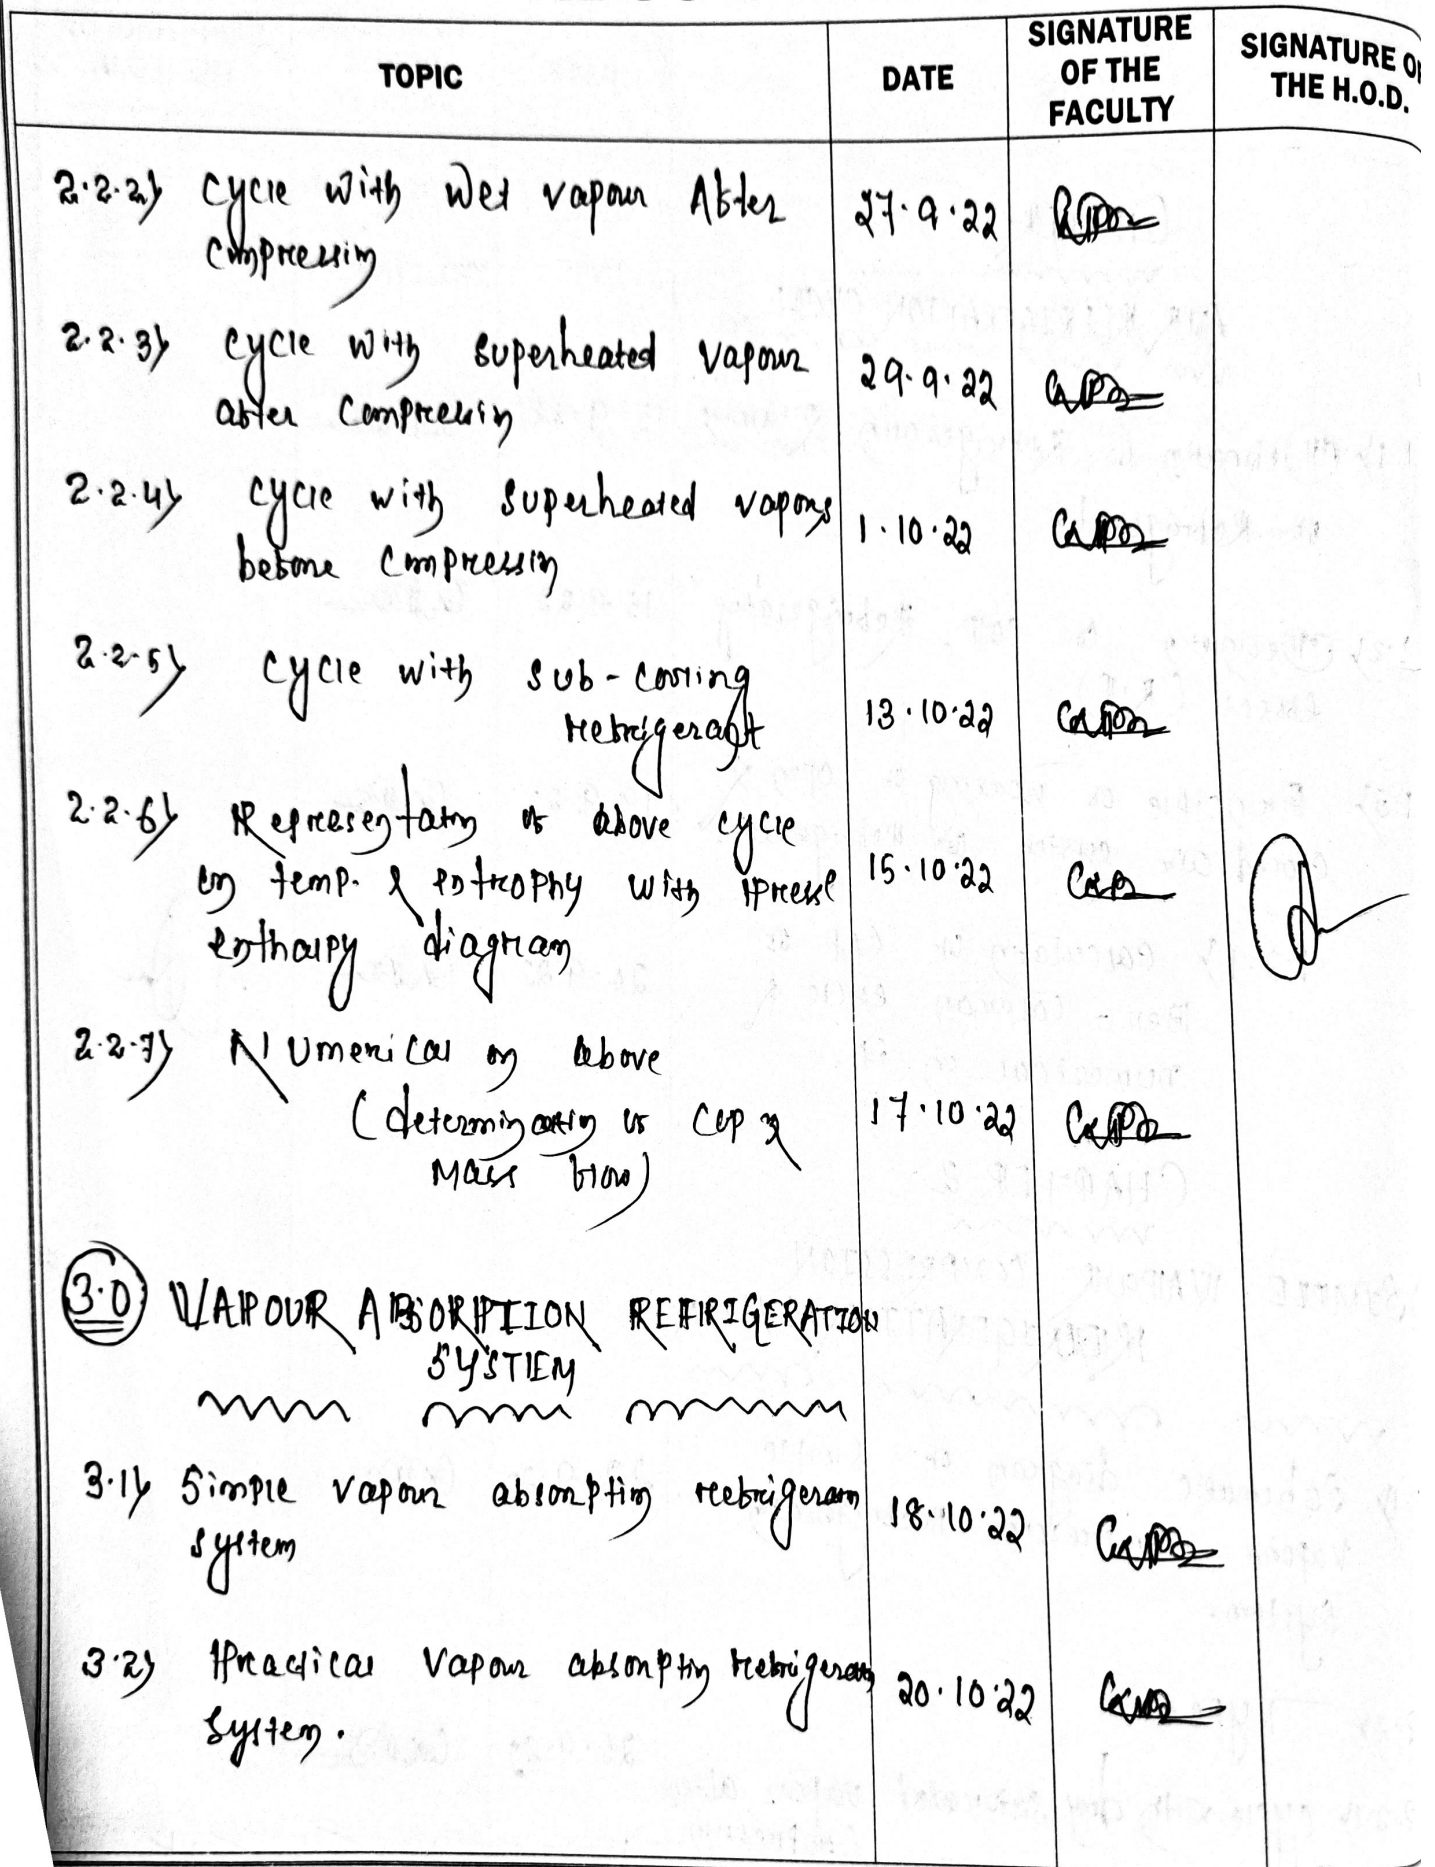 TOPIC DATE SIGNATURE OF THE FACULTY SIGNATURE OF THE H.O.D.
2.2.2) Cycle with Wet vapour After 27.9.22
Compression
2.2.3) cycle with superheated vapour 29.9.22
after compression
2.2.4) cycle with superheated vapour 1.10.22
before compression
2.2.5) cycle with sub-cooling
refrigerant 13.10.22
2.2.6) Representation of above cycle
on temp. & entrophy with press 15.10.22
enthalpy diagram
2.2.7) Numerical on above
(determination of cop & 17.10.22
Mass flow)
3.0 VAPOUR ABSORPTION REFRIGERATION
SYSTEM
3.1) Simple vapour absorption refrigeration 18.10.22
system
3.2) Practical vapour absorption refrigeration 20.10.22
system.